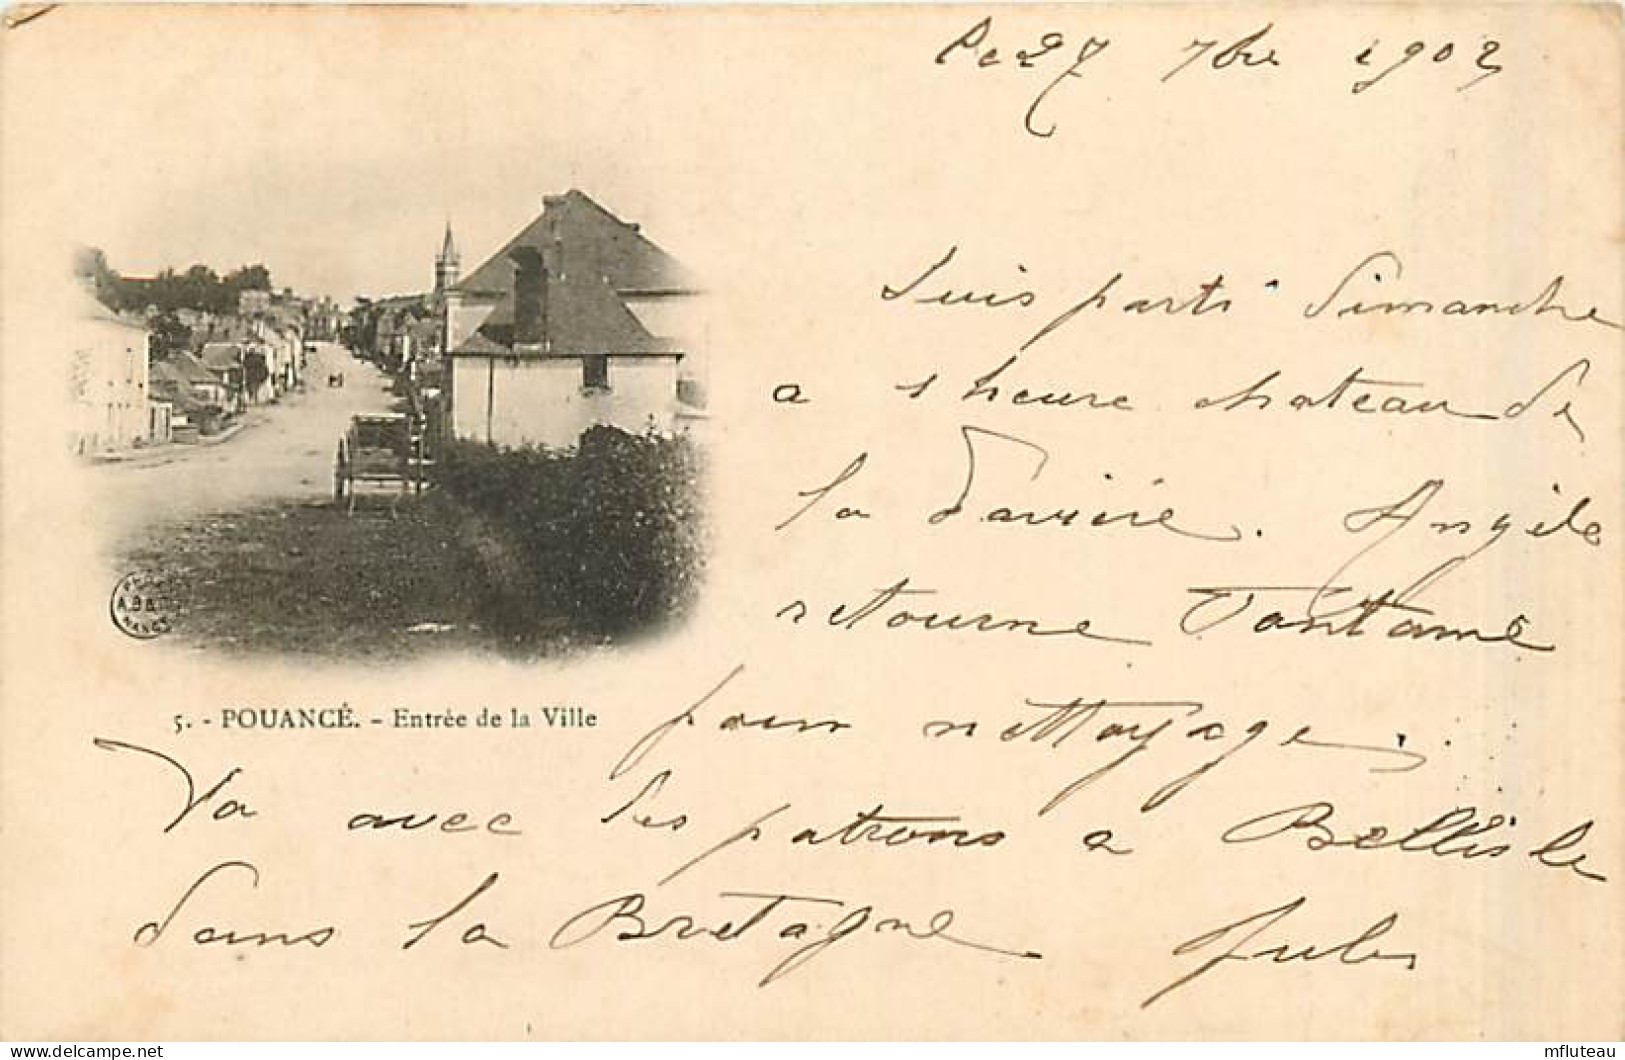 27 7bre 1902
Suis parti Dimanche
a 1 heure chateau de
la Angèle
retourne
pour nettoyage
5. - POUANCÉ. - Entrée de la Ville
Va avec les patrons a Bellisle
dans la Bretagne Jules
A.B.&
NANCY
mes-cartes-anciennes.delcampe.net
mfluteau